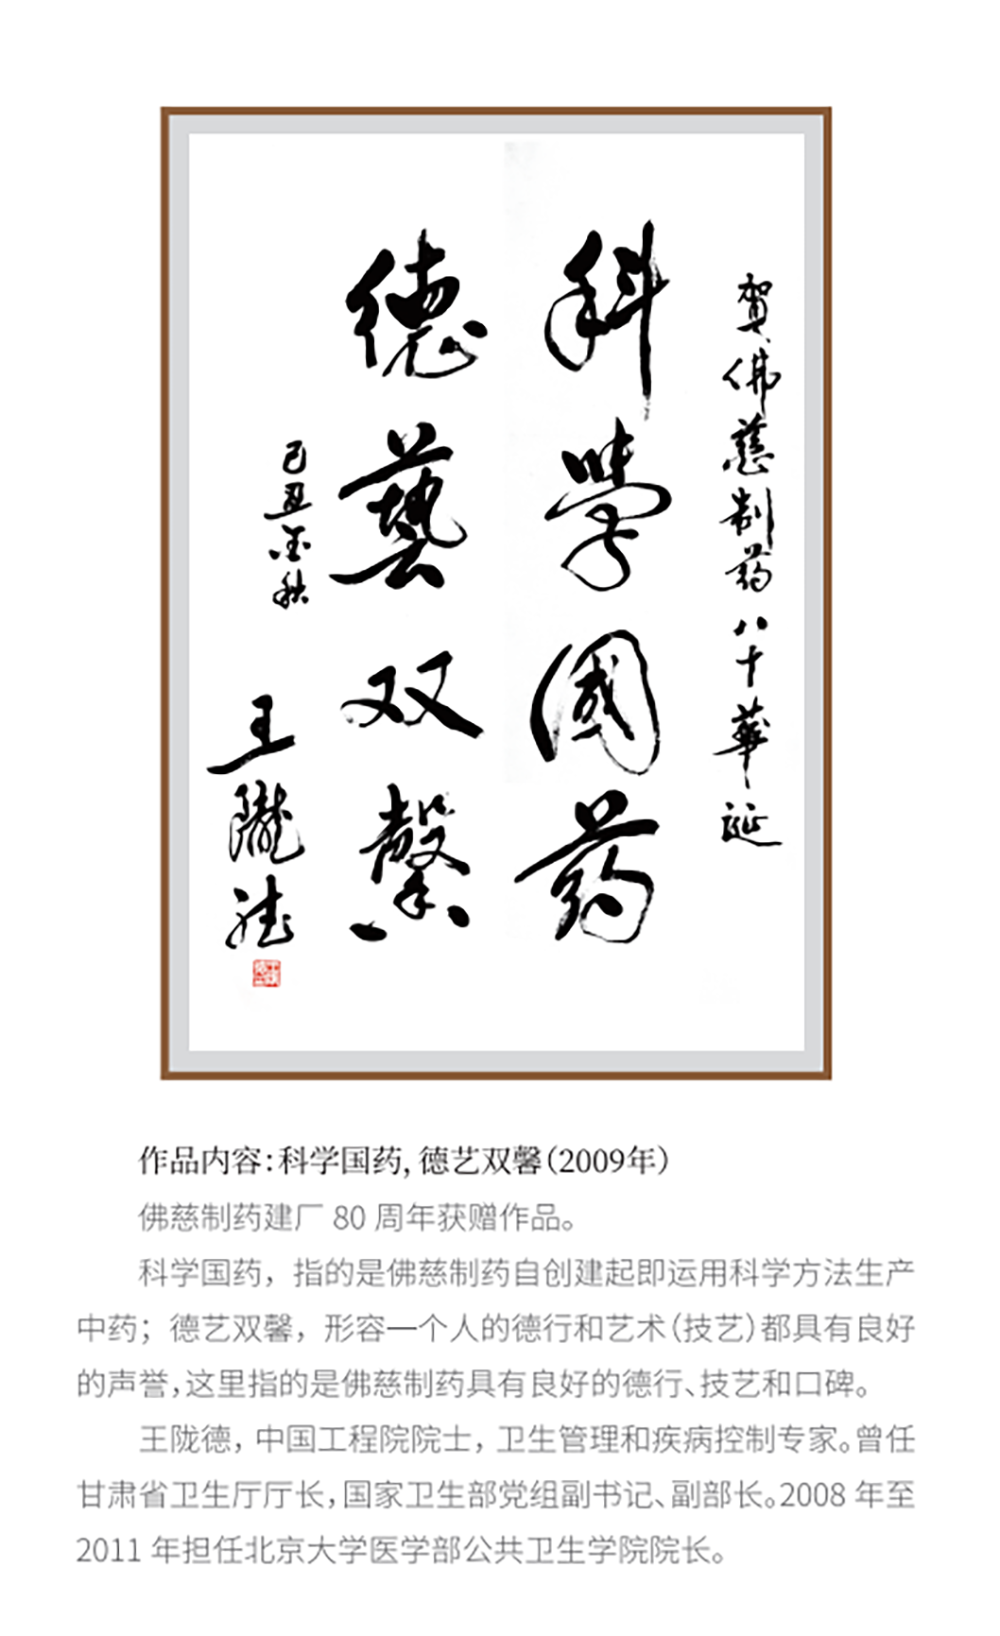 贺佛慈制药八十华诞
科学国药
德艺双馨
己丑金秋
王陇德
作品内容：科学国药, 德艺双馨（2009年）
佛慈制药建厂 80 周年获赠作品。
科学国药，指的是佛慈制药自创建起即运用科学方法生产
中药；德艺双馨，形容一个人的德行和艺术（技艺）都具有良好
的声誉，这里指的是佛慈制药具有良好的德行、技艺和口碑。
王陇德，中国工程院院士，卫生管理和疾病控制专家。曾任
甘肃省卫生厅厅长，国家卫生部党组副书记、副部长。2008 年至
2011 年担任北京大学医学部公共卫生学院院长。